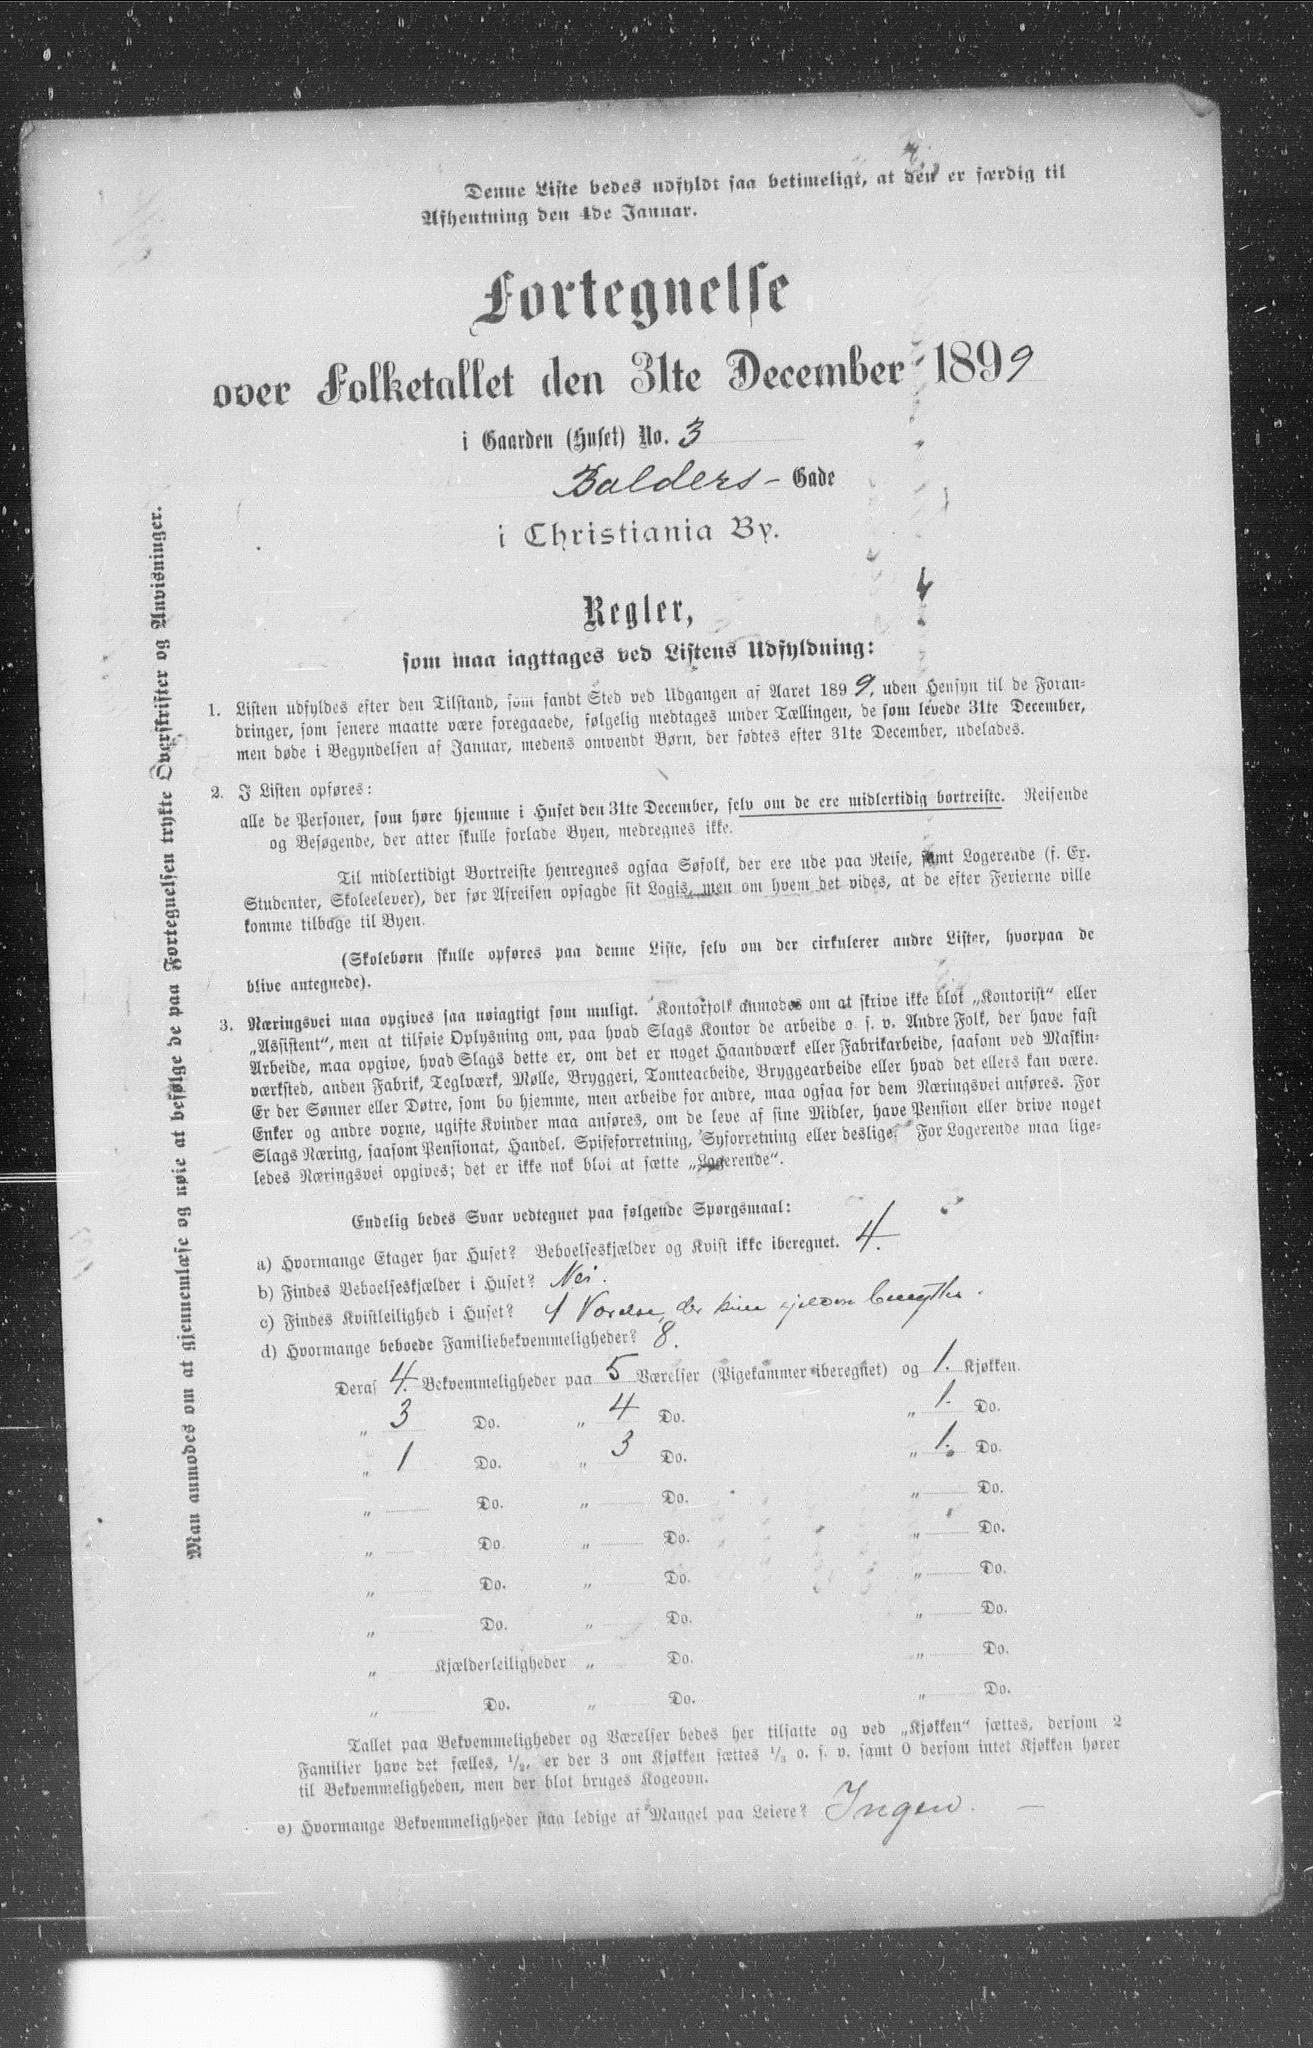 Denne Liste bedes udfyldt saa betimeligt, at den er færdig til
Afhentning den 4de Januar.
Fortegnelse
over Folketallet den 31te December 1899
i Gaarden (Huset) No. 3
Balders- Gade
i Christiania By.
Regler,
som maa iagttages ved Listens Udfyldning:
1. Listen udfyldes efter den Tilstand, som fandt Sted ved Udgangen af Aaret 1899, uden Hensyn til de Foran-
dringer, som senere maatte være foregaaede, følgelig medtages under Tællingen, de som levede 31te December,
men døde i Begyndelsen af Januar, medens omvendt Børn, der fødtes efter 31te December, udelades.
2. I Listen opføres:
alle de Personer, som høre hjemme i Huset den 31te December, selv om de ere midlertidig bortreiste. Reisende
og Besøgende, der atter skulle forlade Byen, medregnes ikke.
Til midlertidigt Bortreiste henregnes ogsaa Søfolk, der ere ude paa Reise, samt Logerende (f. Ex.
Studenter, Skoleelever), der før Afreisen opsagde sit Logis, men om hvem det vides, at de efter Ferierne ville
komme tilbage til Byen.
(Skolebørn skulle opføres paa denne Liste, selv om der cirkulerer andre Lister, hvorpaa de
blive antegnede).
3. Næringsvei maa opgives saa nøiagtigt som muligt. Kontorfolk anmodes om at skrive ikke blot „Kontorist“ eller
„Assistent“, men at tilføie Oplysning om, paa hvad Slags Kontor de arbeide o. s. v. Andre Folk, der have fast
Arbeide, maa opgive, hvad Slags dette er, om det er noget Haandværk eller Fabrikarbeide, saasom ved Maskin-
værksted, anden Fabrik, Teglværk, Mølle, Bryggeri, Tomtearbeide, Bryggearbeide eller hvad det ellers kan være.
Er der Sønner eller Døtre, som bo hjemme, men arbeide for andre, maa ogsaa for dem Næringsvei anføres. For
Enker og andre voxne, ugifte Kvinder maa anføres, om de leve af sine Midler, have Pension eller drive noget
Slags Næring, saasom Pensionat, Handel, Spiseforretning, Syforretning eller deslige. For Logerende maa lige-
ledes Næringsvei opgives; det er ikke nok blot at sætte „Logerende“.
Endelig bedes Svar vedtegnet paa følgende Spørgsmaal:
a) Hvormange Etager har Huset? Beboelseskjælder og Kvist ikke iberegnet. 4.
b) Findes Beboelseskjælder i Huset? Nei.
c) Findes Kvistleilighed i Huset? 1 Værelse, der kun sjelden benyttes.
d) Hvormange beboede Familiebekvemmeligheder? 8.
Deraf 4. Bekvemmeligheder paa 5 Værelser (Pigekammer iberegnet) og 1. Kjøkken.
„ 3 Do. „ 4 Do. „ 1. Do.
„ 1 Do. „ 3 Do. „ 1. Do.
„ Do. „ Do. „ Do.
„ Do. „ Do. „ Do.
„ Do. „ Do. „ Do.
„ Do. „ Do. „ Do.
„ Kjælderleiligheder „ Do. „ Do.
„ Do. „ Do. „ Do.
Tallet paa Bekvemmeligheder og Værelser bedes her tilsatte og ved „Kjøkken“ sættes, dersom 2
Familier have det fælles, 1/2, er der 3 om Kjøkken sættes 1/3 o. s. v. samt 0 dersom intet Kjøkken hører
til Bekvemmeligheden, men der blot bruges Kogeovn.
e) Hvormange Bekvemmeligheder staa ledige af Mangel paa Leiere? Ingen. —
Man anmodes om at gjennemlæse og nøie at befølge de paa Fortegnelsen trykte Overskrifter og Anvisninger.